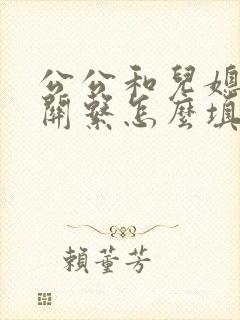 公公和兒媳
關繫怎麼填
賴董芳